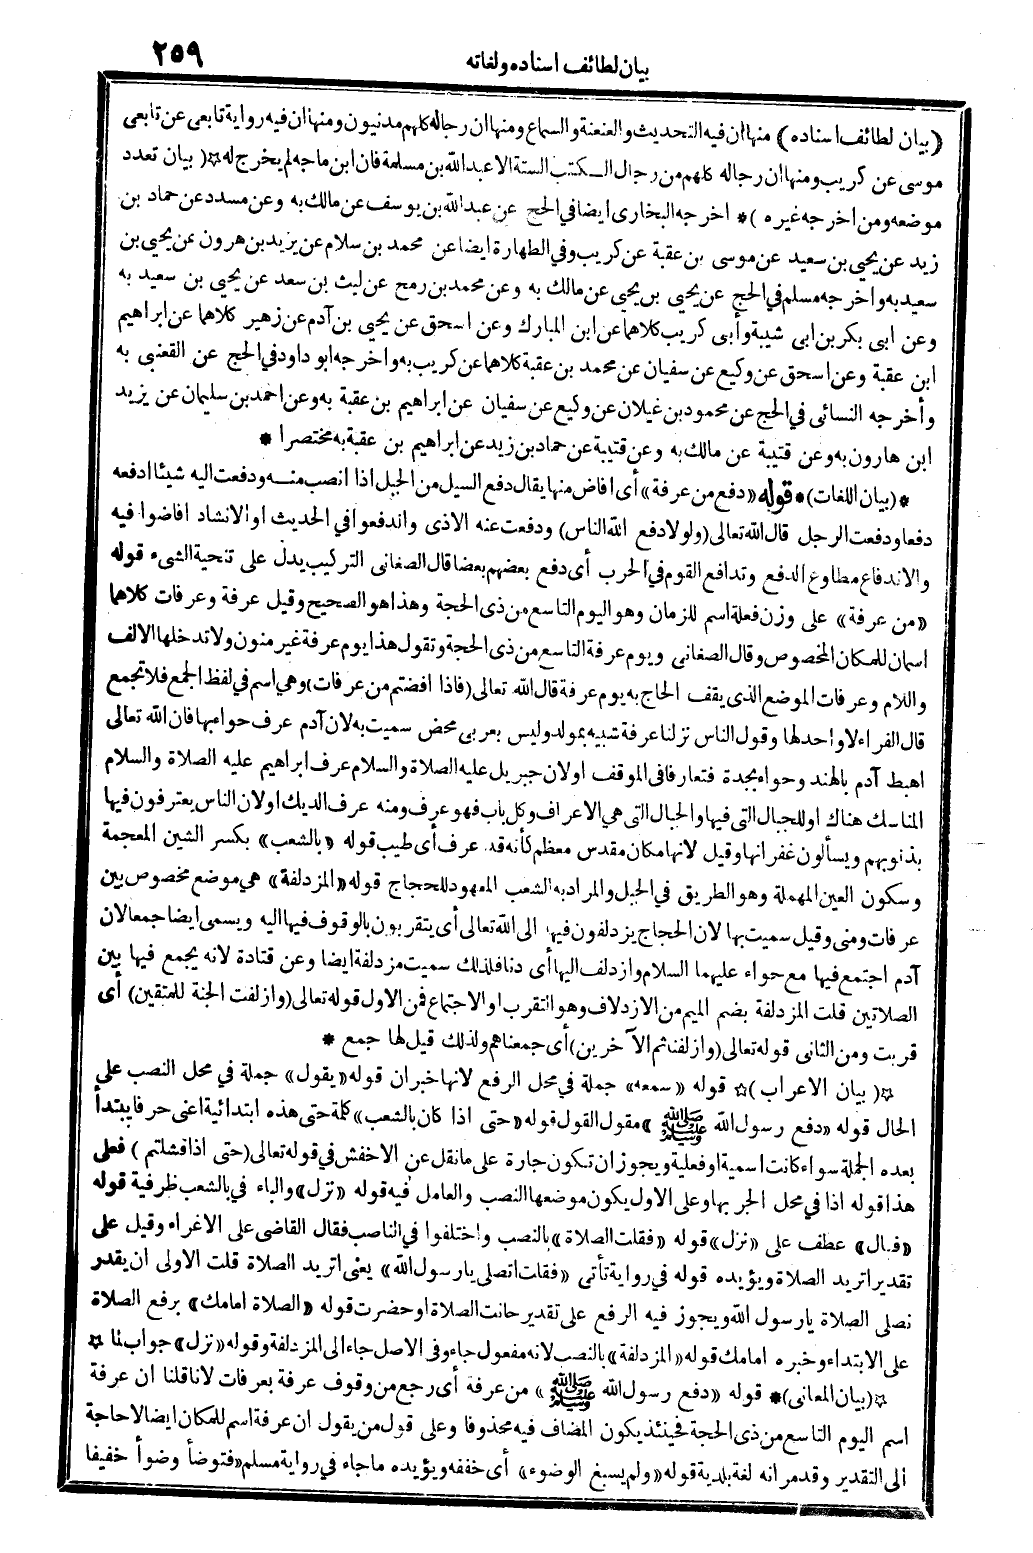 بيان لطائف اسناده ولغاته
٢٥٩
(بيان لطائف اسناده) منها أن فيه التحديث والعنعنة والسماع ومنها ان رجاله كلهم مدنيون ومنها أن فيه رواية تابعى عن تابعى
موسى عن كريب ومنها ان رجاله كلهم من رجال الكتب الستة الا عبد الله بن مسلمة فان ابن ماجه لم يخرج له ☆ (بيان تعدد
موضعه ومن اخرجه غيره) * اخرجه البخارى ايضا في الحج عن عبد الله بن يوسف عن مالك به وعن مسدد عن حماد بن
زيد عن يحيى بن سعيد عن موسى بن عقبة عن كريب وفي الطهارة ايضا عن محمد بن سلام عن يزيد بن هرون عن يحيى بن
سعيد به واخرجه مسلم في الحج عن يحيى بن يحيى عن مالك به وعن محمد بن رمح عن ليث بن سعد عن يحيى بن سعيد به
وعن ابى بكر بن ابى شيبة وأبى كريب كلاهما عن ابن المبارك وعن اسحق عن يحيى بن آدم عن زهير كلاهما عن ابراهيم
ابن عقبة وعن اسحق عن وكيع عن سفيان عن محمد بن عقبة كلاهما عن كريب به واخرجه ابو داود في الحج عن القعنبى به
وأخرجه النسائى في الحج عن محمود بن غيلان عن وكيع عن سفيان عن ابراهيم بن عقبة به وعن احمد بن سليمان عن يزيد
ابن هارون به وعن قتيبة عن مالك به وعن قتيبة عن حماد بن زيد عن ابراهيم بن عقبة به مختصرا *
* (بيان اللغات) * قوله «دفع من عرفة» أى افاض منها يقال دفع السيل من الجبل اذا انصب منه ودفعت اليه شيئا ادفعه
دفعا ودفعت الرجل قال الله تعالى (ولولا دفع الله الناس) ودفعت عنه الاذى واندفعوا في الحديث او الانشاد افاضوا فيه
والاندفاع مطاوع الدفع وتدافع القوم في الحرب أى دفع بعضهم بعضا قال الصغانى التركيب يدل على تنحية الشىء قوله
«من عرفة» على وزن فعلة اسم للزمان وهو اليوم التاسع من ذى الحجة وهذا هو الصحيح وقيل عرفة وعرفات كلاهما
اسمان للمكان المخصوص وقال الصغانى ويوم عرفة التاسع من ذى الحجة وتقول هذا يوم عرفة غير منون ولا تدخلها الالف
واللام وعرفات الموضع الذى يقف الحاج به يوم عرفة قال الله تعالى (فاذا افضتم من عرفات) وهي اسم في لفظ الجمع فلا تجمع
قال الفراء لا واحد لها وقول الناس نزلنا عرفة شبيه بمولد وليس بعربى محض سميت به لان آدم عرف حواء بها فان الله تعالى
اهبط آدم بالهند وحواء بجدة فتعارفا في الموقف او لان جبريل عليه الصلاة والسلام عرف ابراهيم عليه الصلاة والسلام
المناسك هناك او للجبال التى فيها والجبال التى هي الاعراف وكل باب فهو عرف ومنه عرف الديك او لان الناس يعترفون فيها
بذنوبهم ويسألون غفرانها وقيل لانها مكان مقدس معظم كأنه قد عرف أى طيب قوله «بالشعب» بكسر الشين المعجمة
وسكون العين المهملة وهو الطريق في الجبل والمراد به الشعب المعهود للحجاج قوله «المزدلفة» هي موضع مخصوص بين
عرفات ومنى وقيل سميت بها لان الحجاج يزدلفون فيها الى الله تعالى أى يتقربون بالوقوف فيها اليه ويسمى ايضا جمعا لان
آدم اجتمع فيها مع حواء عليهما السلام وازدلف اليها أى دنا فلذلك سميت مزدلفة ايضا وعن قتادة لانه يجمع فيها بين
الصلاتين قلت المزدلفة بضم الميم من الازدلاف وهو التقرب او الاجتماع فمن الاول قوله تعالى (وازلفت الجنة للمتقين) أى
قربت ومن الثانى قوله تعالى (وازلفنا ثم الآخرين) أى جمعناهم ولذلك قيل لها جمع *
☆ (بيان الاعراب) ☆ قوله «سمعه» جملة في محل الرفع لانها خبر ان قوله «يقول» جملة في محل النصب على
الحال قوله «دفع رسول الله ﷺ» مقول القول قوله «حتى اذا كان بالشعب» كلمة حتى هذه ابتدائية اعنى حرفا يبتدأ
بعده الجملة سواء كانت اسمية او فعلية ويجوز ان تكون جارة على ما نقل عن الاخفش في قوله تعالى (حتى اذا فشلتم) فعلى
هذا قوله اذا في محل الجر بها وعلى الاول يكون موضعها النصب والعامل فيه قوله «نزل» والباء في بالشعب ظرفية قوله
«فبال» عطف على «نزل» قوله «فقلت الصلاة» بالنصب واختلفوا في الناصب فقال القاضى على الاغراء وقيل على
تقدير اتريد الصلاة ويؤيده قوله في رواية تأتى «فقلت اتصلى يا رسول الله» يعنى اتريد الصلاة قلت الاولى ان يقدر
نصلى الصلاة يا رسول الله ويجوز فيه الرفع على تقدير حانت الصلاة او حضرت قوله «الصلاة امامك» برفع الصلاة
على الابتداء وخبره امامك قوله «المزدلفة» بالنصب لانه مفعول جاء وفي الاصل جاء الى المزدلفة وقوله «نزل» جواب لما ☆
☆ (بيان المعانى) * قوله «دفع رسول الله ﷺ» من عرفة أى رجع من وقوف عرفة بعرفات لانا قلنا ان عرفة
اسم اليوم التاسع من ذى الحجة فحينئذ يكون المضاف فيه محذوفا وعلى قول من يقول ان عرفة اسم للمكان ايضا لا حاجة
الى التقدير وقد مر انه لغة بلدية قوله «ولم يسبغ الوضوء» أى خففه ويؤيده ما جاء في رواية مسلم «فتوضأ وضوأ خفيفا